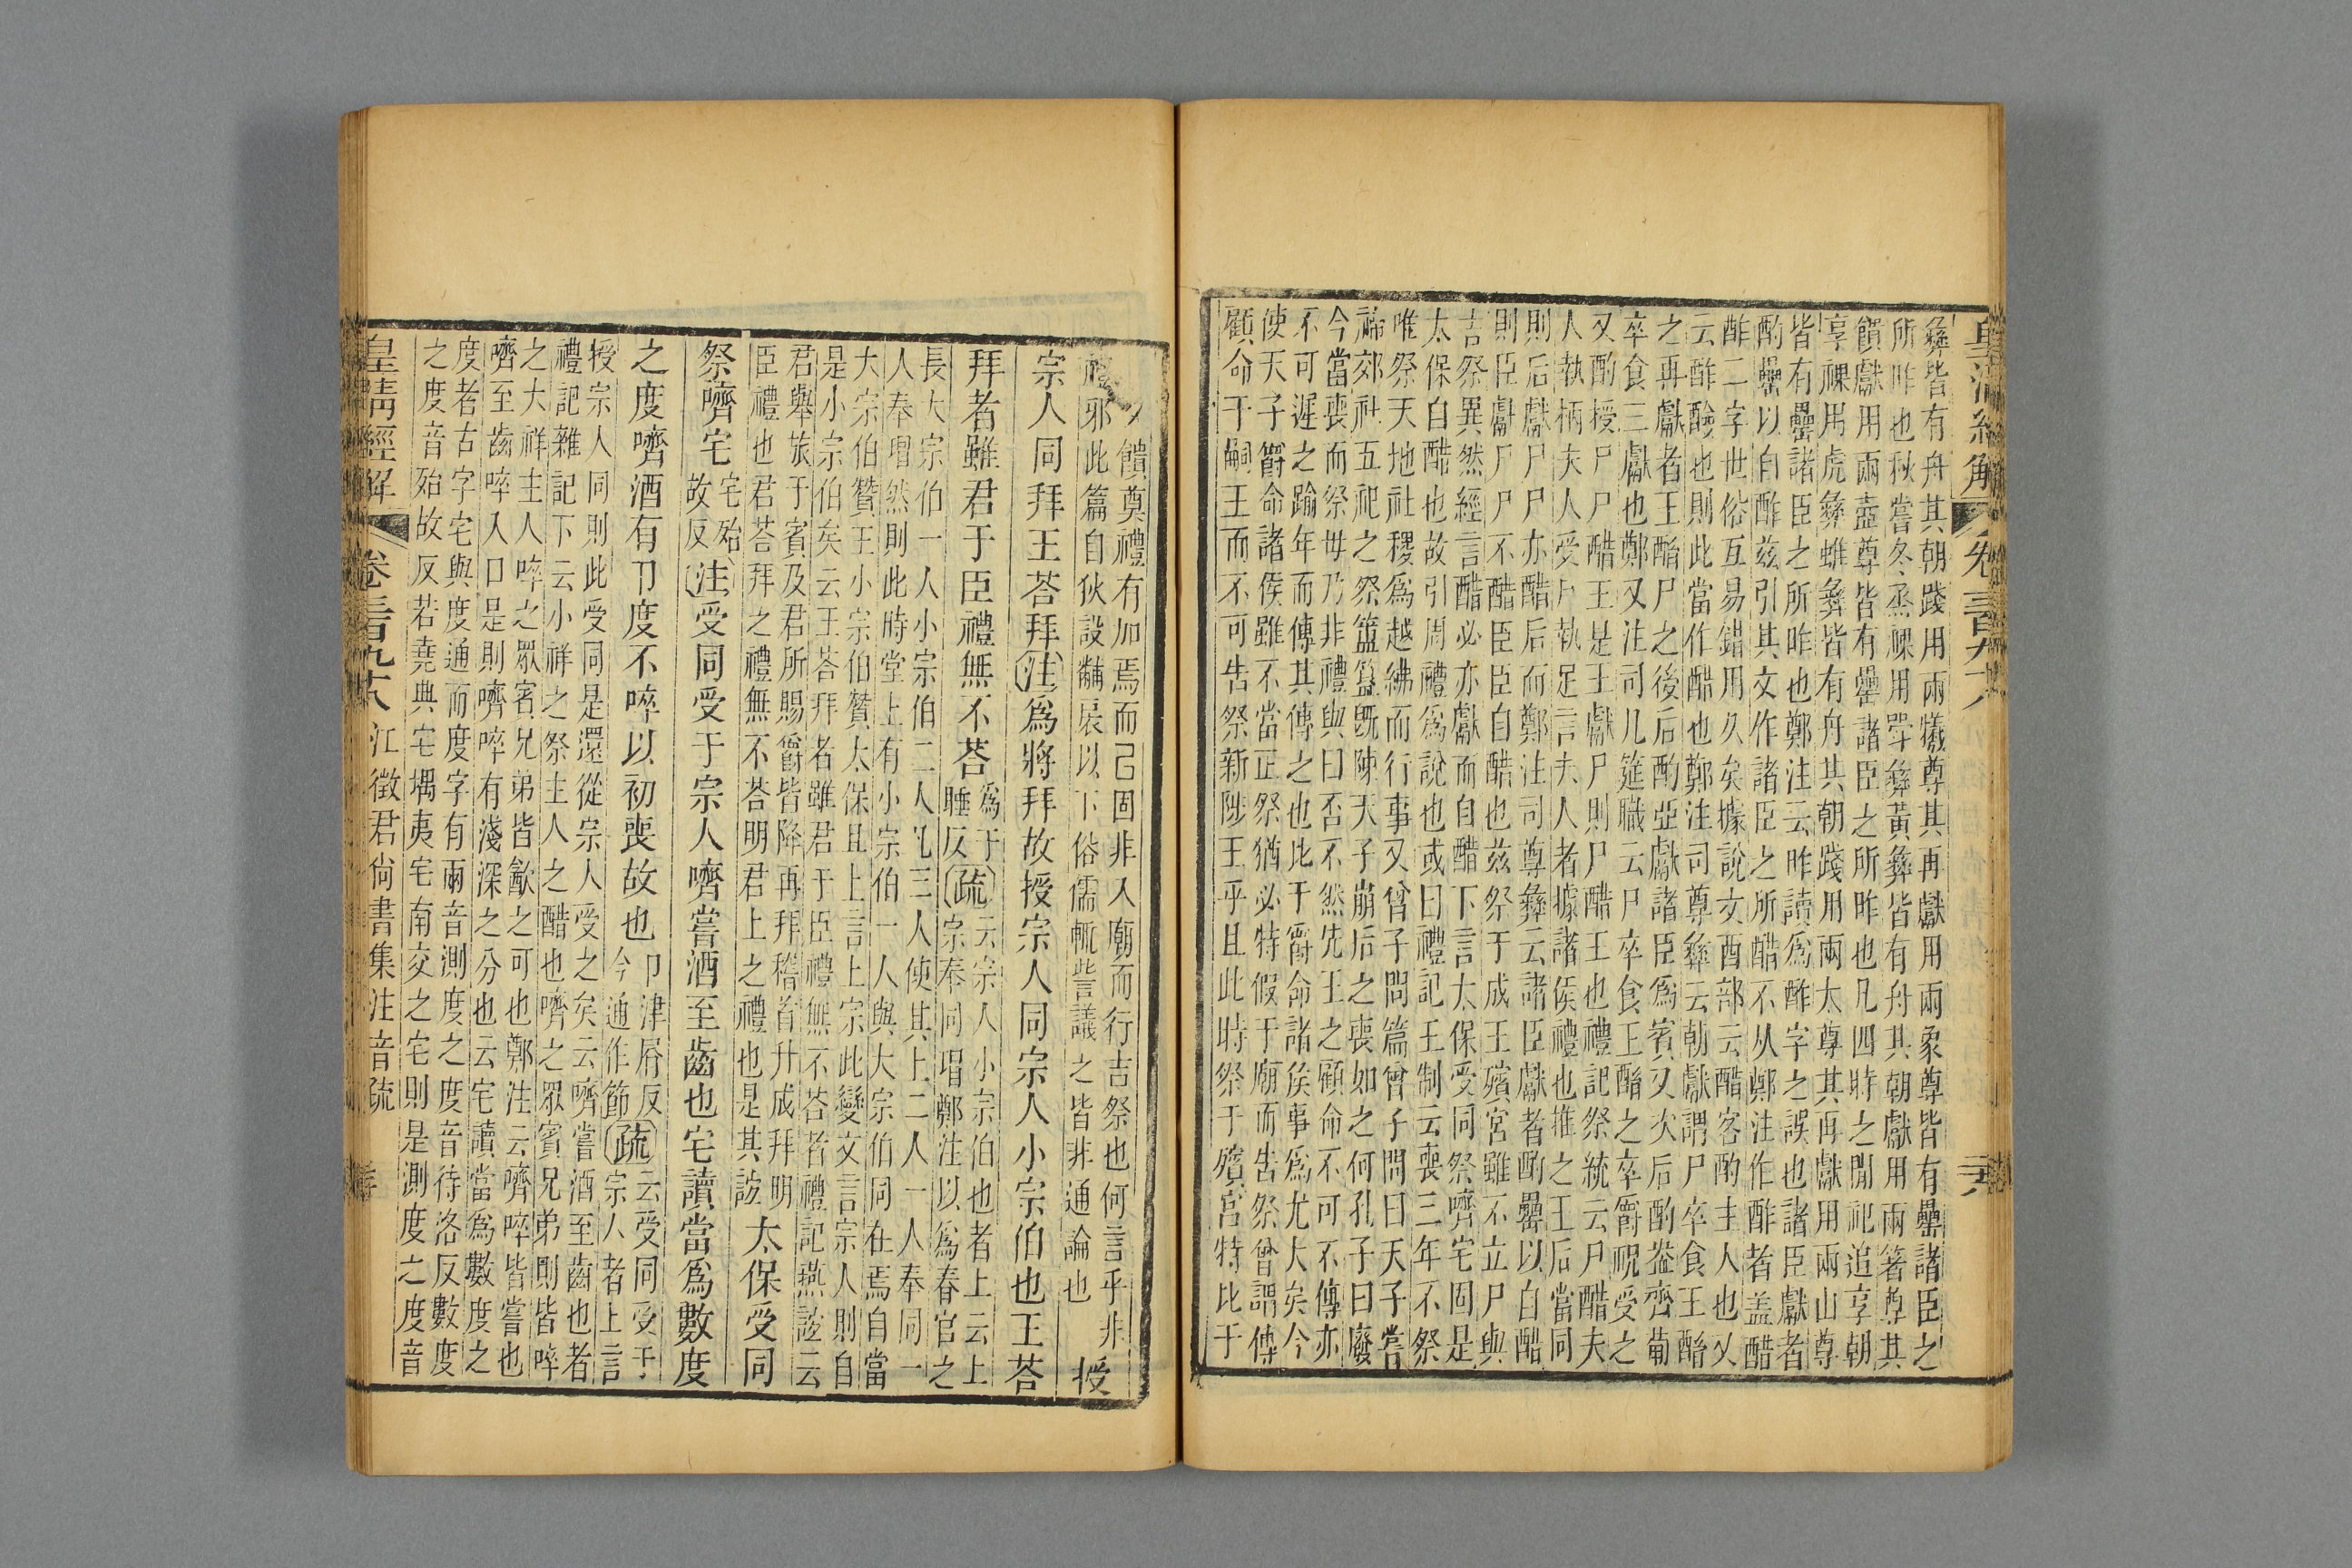 皇清經解 卷三百九十八
彝皆有舟其朝踐用兩犧尊其再獻用兩象尊皆有罍諸臣之
所昨也秋嘗冬烝祼用斝彝黃彝皆有舟其朝獻用兩著尊其
饋獻用兩壺尊皆有罍諸臣之所昨也凡四時之閒祀追享朝
享祼用虎彝蜼彝皆有舟其朝踐用兩大尊其再獻用兩山尊
皆有罍諸臣之所昨也鄭注云昨讀爲酢字之誤也諸臣獻者
酌罍以自酢茲引其文作諸臣之所醋不从鄭注作酢者盖醋
酢二字世俗互易錯用久矣據說文酉部云醋客酌主人也又
云酢醶也則此當作醋也鄭注司尊彝云朝獻謂尸卒食王酳
之再獻者王酳尸之後后酌亞獻諸臣爲賓又次后酌盎齊葡
卒食三獻也鄭又注司几筵職云尸卒食王酳之卒爵祝受之
又酌授尸尸醋王是王獻尸則尸醋王也禮記祭統云尸醋夫
人執柄夫人受尸執足言夫人者據諸侯禮也推之王后當同
則后獻尸尸亦醋后而鄭注司尊彝云諸臣獻者酌罍以自醋
則臣獻尸尸不醋臣臣自醋也茲祭于成王殯宮雖不立尸與
吉祭異然經言醋必亦獻而自醋下言太保受同祭嚌宅固是
太保自醋也故引周禮爲說也或曰禮記王制云喪三年不祭
唯祭天地社稷爲越紼而行事又曾子問篇曾子問曰天子嘗
禘郊社五祀之祭簠簋旣陳天子崩后之喪如之何孔子曰廢
今當喪而祭毋乃非禮與曰否不然先王之顧命不可不傳亦
不可遲之踰年而傳其傳之也比于爵命諸侯事爲尤大矣今
使天子爵命諸侯雖不當正祭猶必特假于廟而告祭曾謂傳
顧命于嗣王而不可告祭新陟王乎且此時祭于殯宮特比于
饋奠禮有加焉而已固非入廟而行吉祭也何言乎非
禮邪此篇自狄設黼扆以下俗儒輒訾議之皆非通論也 授
宗人同拜王荅拜注爲將拜故授宗人同宗人小宗伯也王荅
拜者雖君于臣禮無不荅 爲于睡反 疏 云宗人小宗伯也者上云上宗奉同瑁鄭注以爲春官之
長大宗伯一人小宗伯二人凡三人使其上二人一人奉同一
人奉瑁然則此時堂上有小宗伯一人與大宗伯同在焉自當
大宗伯贊王小宗伯贊太保且上言上宗此變文言宗人則自
是小宗伯矣云王荅拜者雖君于臣禮無不荅者禮記燕誼云
君舉旅于賓及君所賜爵皆降再拜稽首升成拜明
臣禮也君荅拜之禮無不荅明君上之禮也是其誼 太保受同
祭嚌宅 宅殆故反 注受同受于宗人嚌嘗酒至齒也宅讀當爲數度
之度嚌酒有卪度不啐以初喪故也 卪津屑反今通作節 疏 云受同受于宗人者上言
授宗人同則此受同是還從宗人受之矣云嚌嘗酒至齒也者
禮記雜記下云小祥之祭主人之醋也嚌之眾賓兄弟則皆啐
之大祥主人啐之眾賓兄弟皆歠之可也鄭注云嚌啐皆嘗也
嚌至齒啐入口是則嚌啐有淺深之分也云宅讀當爲數度之
度者古字宅與度通而度字有兩音測度之度音待洛反數度
之度音殆故反若堯典宅堣夷宅南交之宅則是測度之度音
皇清經解 卷三百九十八 江徵君尚書集注音疏